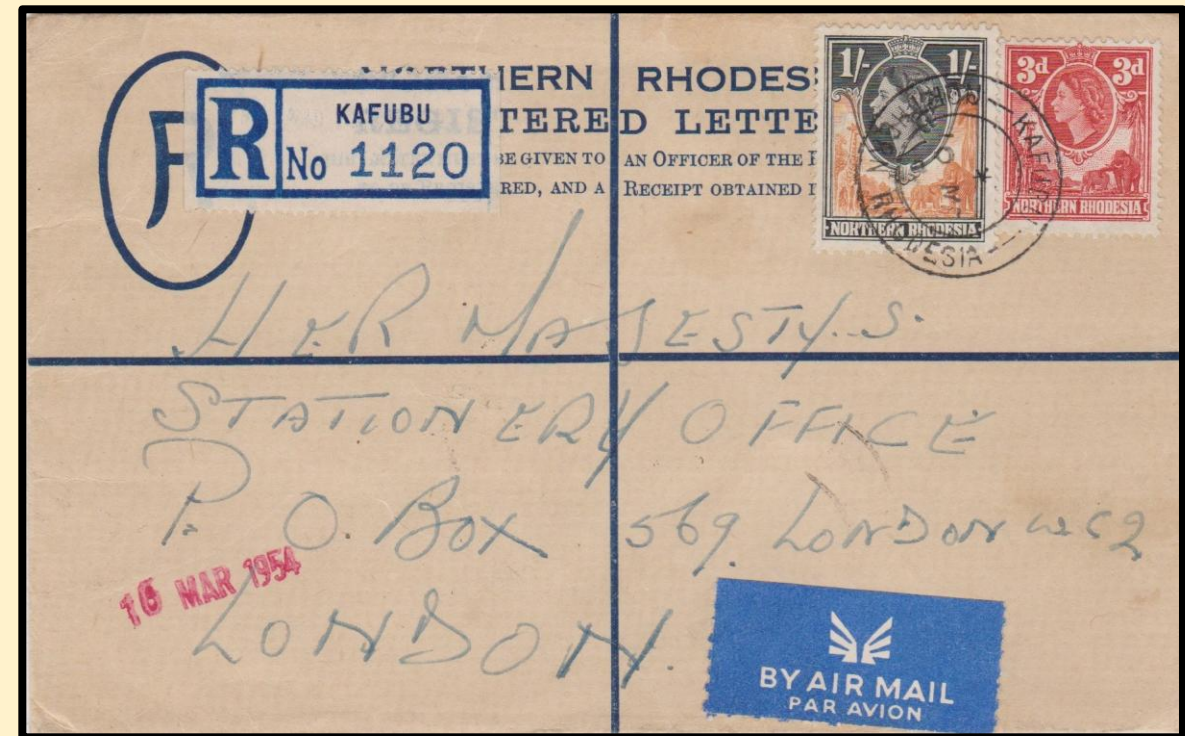 RHODES
TERED LETTE
BE GIVEN TO AN OFFICER OF THE
RED, AND A RECEIPT OBTAINED
R
KAFUBU
No 1120
1/- 1/-
NORTHERN RHODESIA
3d 3d
NORTHERN RHODESIA
KAFUBU
RHODESIA
HER MAJESTY.S.
STATIONERY OFFICE
P. O. BOX 569. LONDON WC2
LONDON.
16 MAR 1954
BY AIR MAIL
PAR AVION